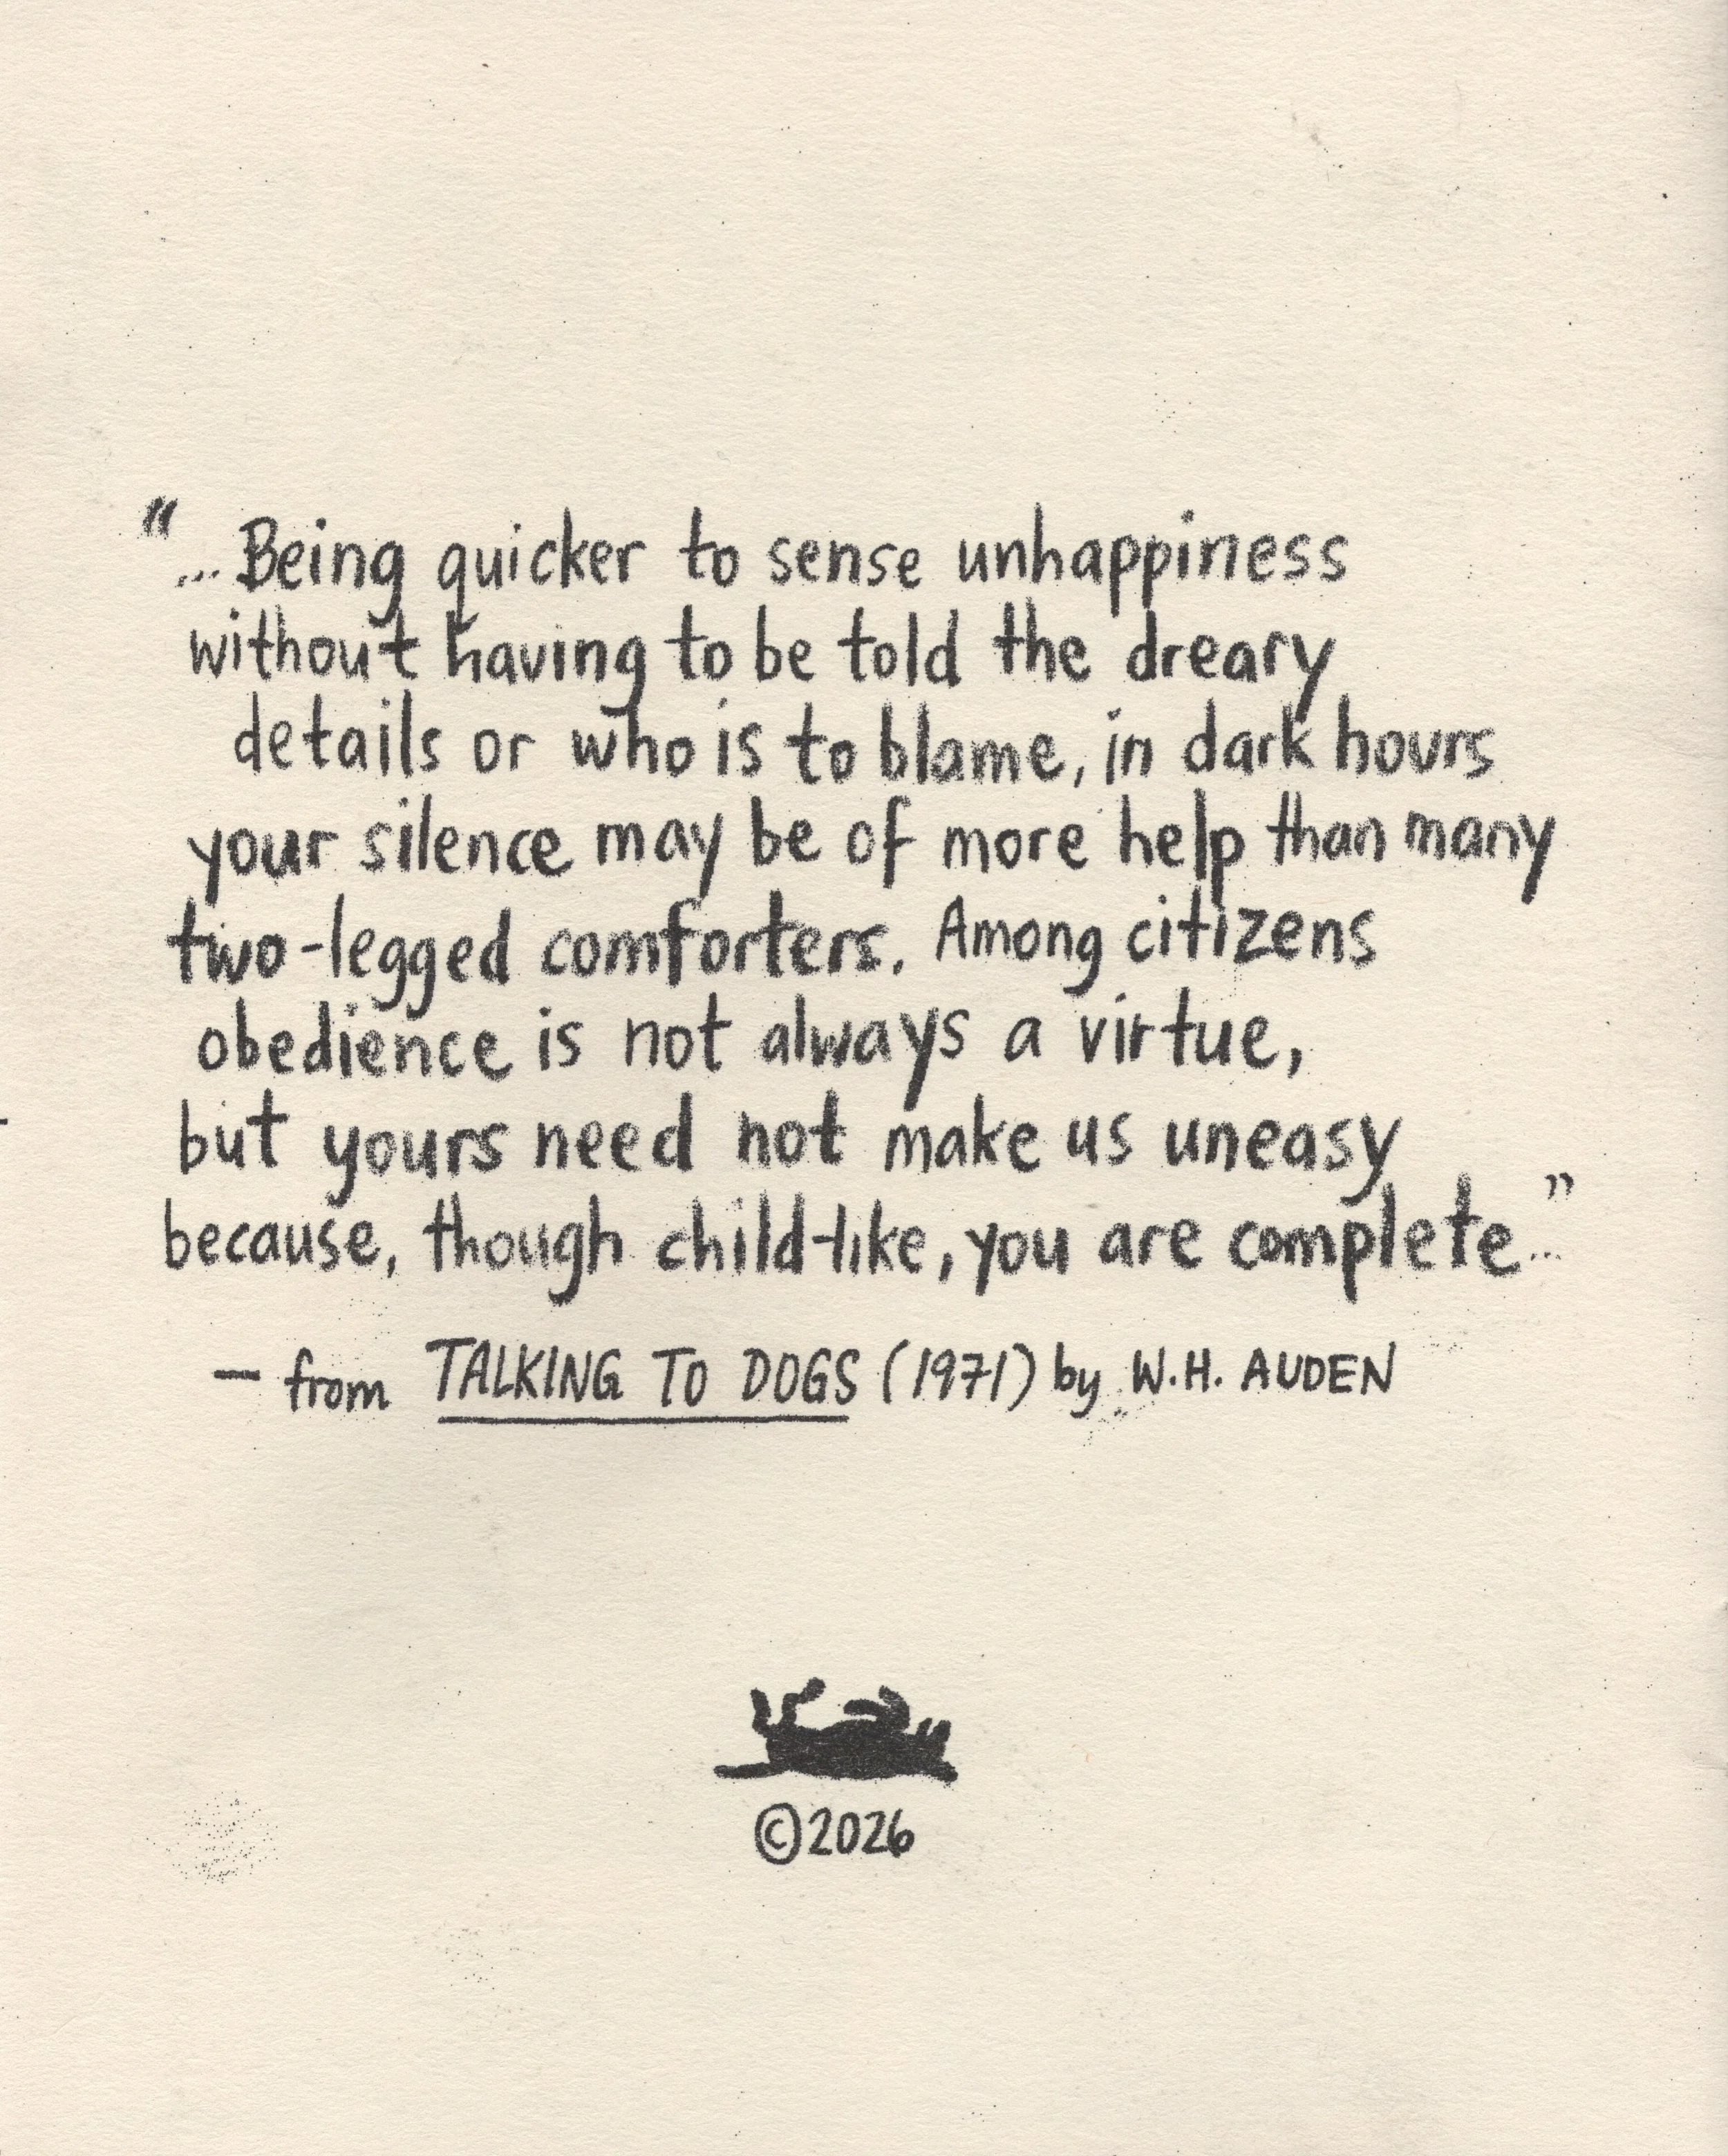 "...Being quicker to sense unhappiness
without having to be told the dreary
details or who is to blame, in dark hours
your silence may be of more help than many
two-legged comforters. Among citizens
obedience is not always a virtue,
but yours need not make us uneasy
because, though child-like, you are complete..."
— from TALKING TO DOGS (1971) by W.H. AUDEN
©2026